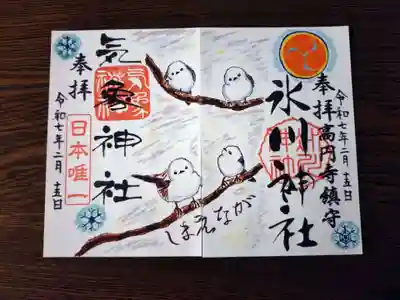 奉拝
高円寺鎮守
氷川神社
令和七年二月十五日
しまえなが
気象神社
奉拝
日本唯一
令和七年二月十五日